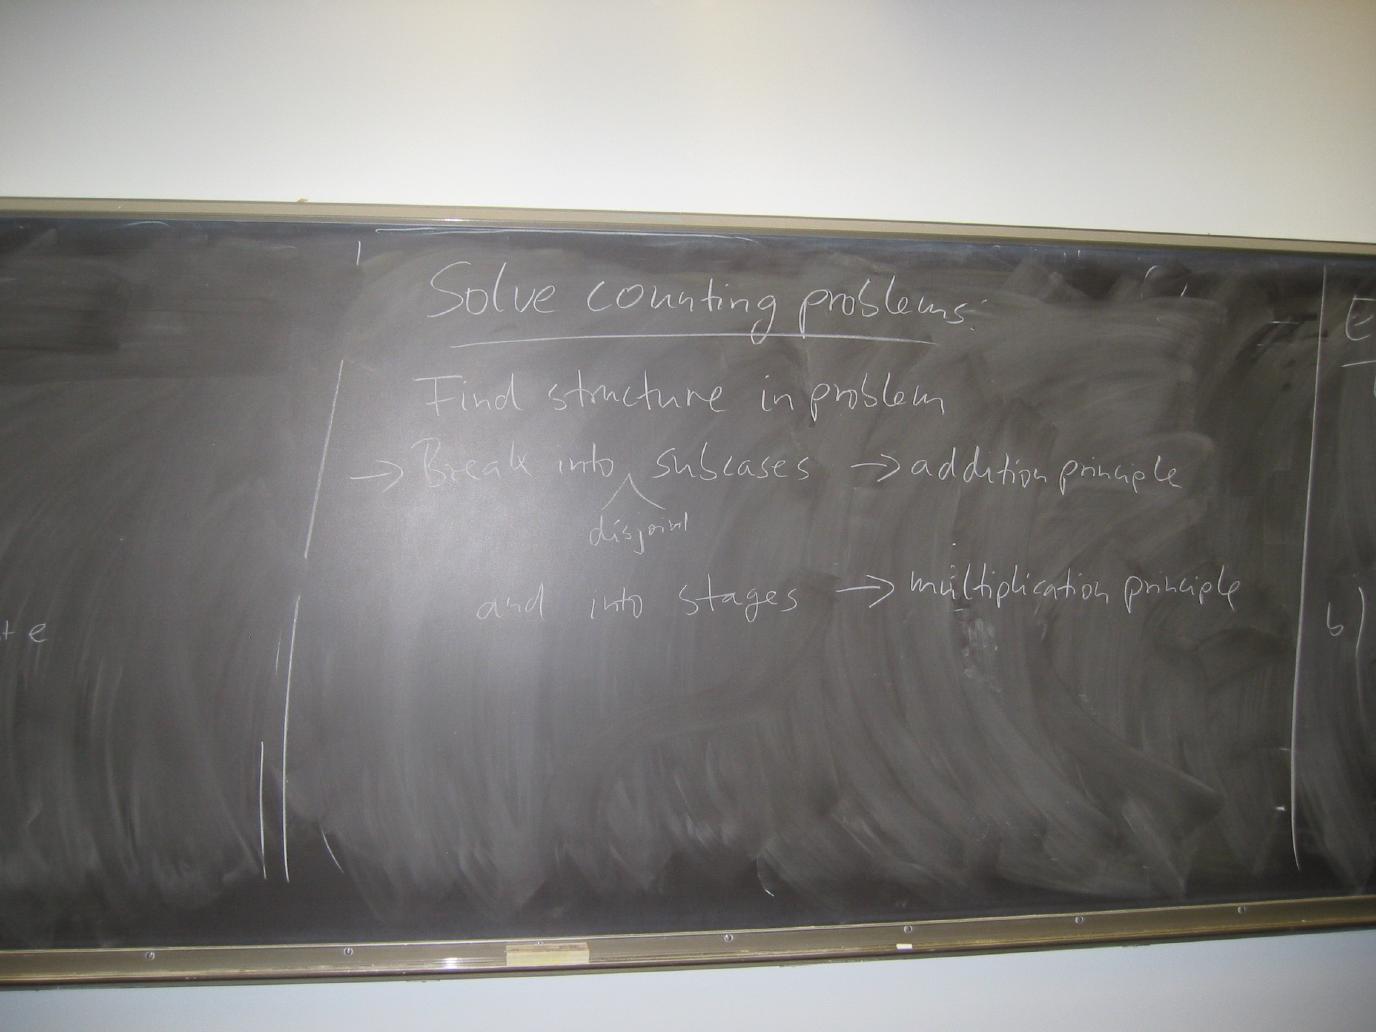 Solve counting problems:
Find structure in problem
→ Break into subcases → addition principle
disjoint
and into stages → multiplication principle
b)